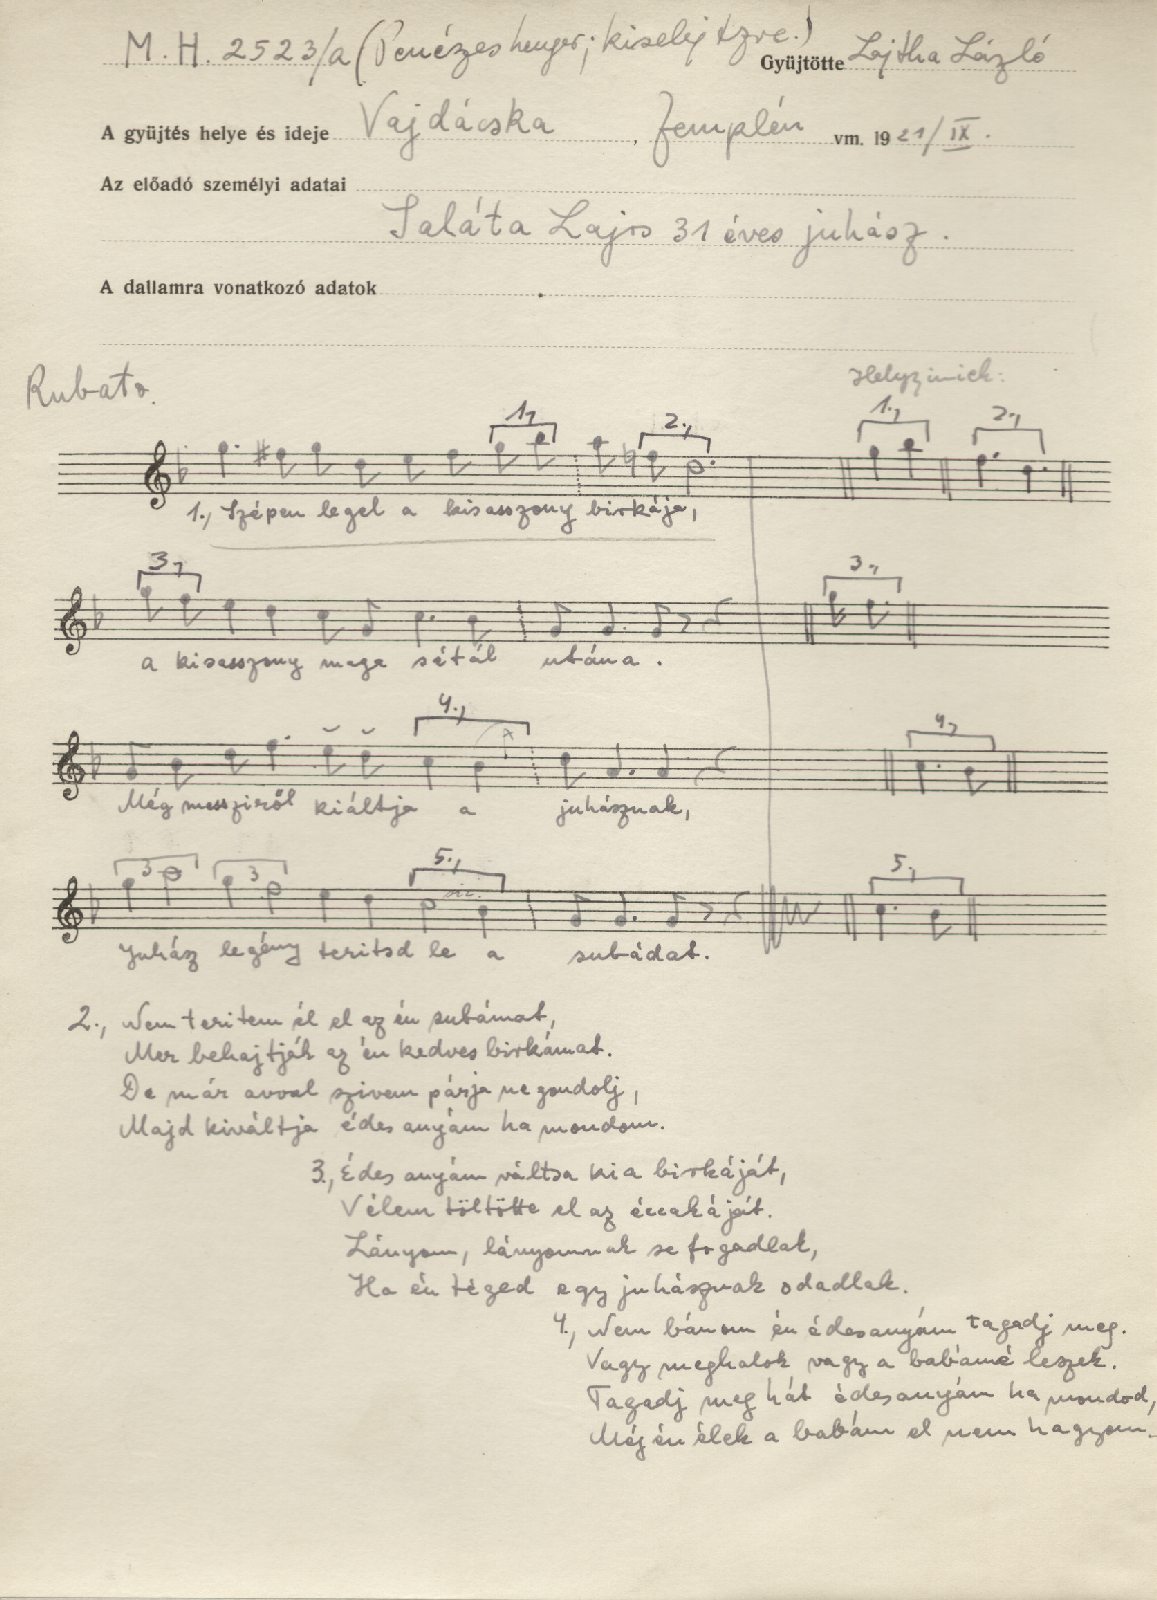 M. H. 2523/a (Penézes henger; kiselejtzve.)
Gyüjtötte Lajtha László
A gyüjtés helye és ideje Vajdácska, Zemplén vm. 1921/IX.
Az előadó személyi adatai
Saláta Lajos 31 éves juhász.
A dallamra vonatkozó adatok
Rubato.
Helyzinick:
1., 2., 1., 2.,
1., Szépen legel a kisasszony birkája,
3., 3.,
a kisasszony maga sétál utána.
4., 4.,
Még messziről kiáltja a juhásznak,
3 3 5., sic. 5.,
Juhász legény teritsd le a subádat.
2., Nem teritem él el az én subámat,
Mer behajtják az én kedves birkámat.
De már avval szivem párja ne gondolj,
Majd kiváltja édes anyám ha mondom.
3., Édes anyám váltsa ki a birkáját,
Vélem töltötte el az éccakáját.
Lányom, lányomnak se fogadlak,
Ha én téged egy juhásznak odadlak.
4., Nem bánom én édesanyám tagadj meg.
Vagy meghalok vagy a babámé leszek.
Tagadj meg hát édesanyám ha mondod,
Még én élek a babám el nem hagyom.